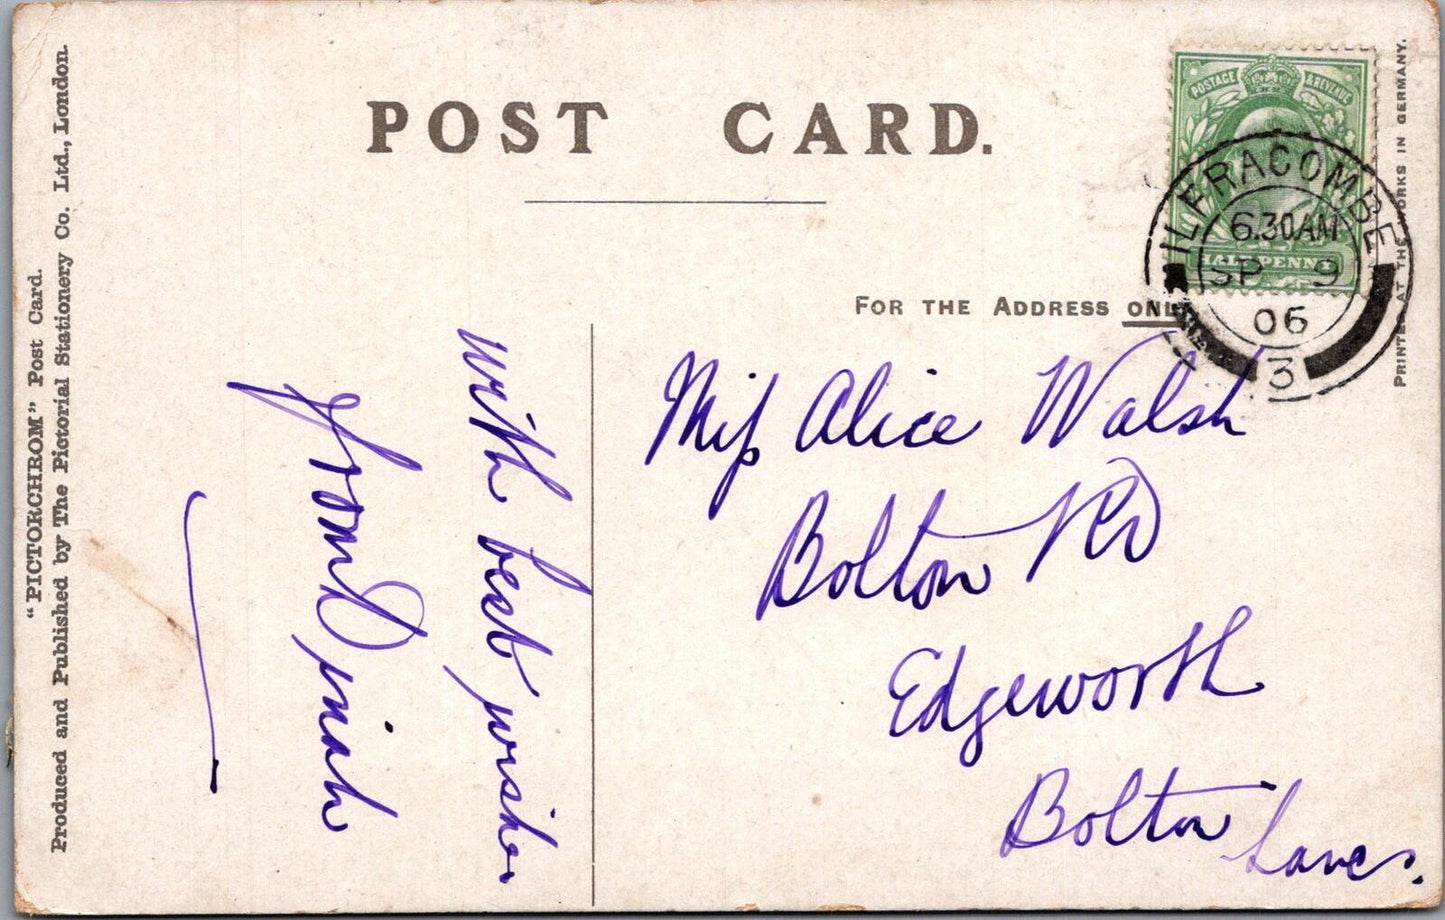 POST CARD.
"PICTORCHROM" Post Card.
Produced and Published by The Pictorial Stationery Co. Ltd., London.
FOR THE ADDRESS ONLY
PRINTED AT THE WORKS IN GERMANY.
POSTAGE & REVENUE
HALFPENNY
ILFRACOMBE
6.30AM
SP 9
06
3
With best wishes
from Dinah
Miss Alice Walsh
Bolton Rd
Edgeworth
Bolton
Lancs.